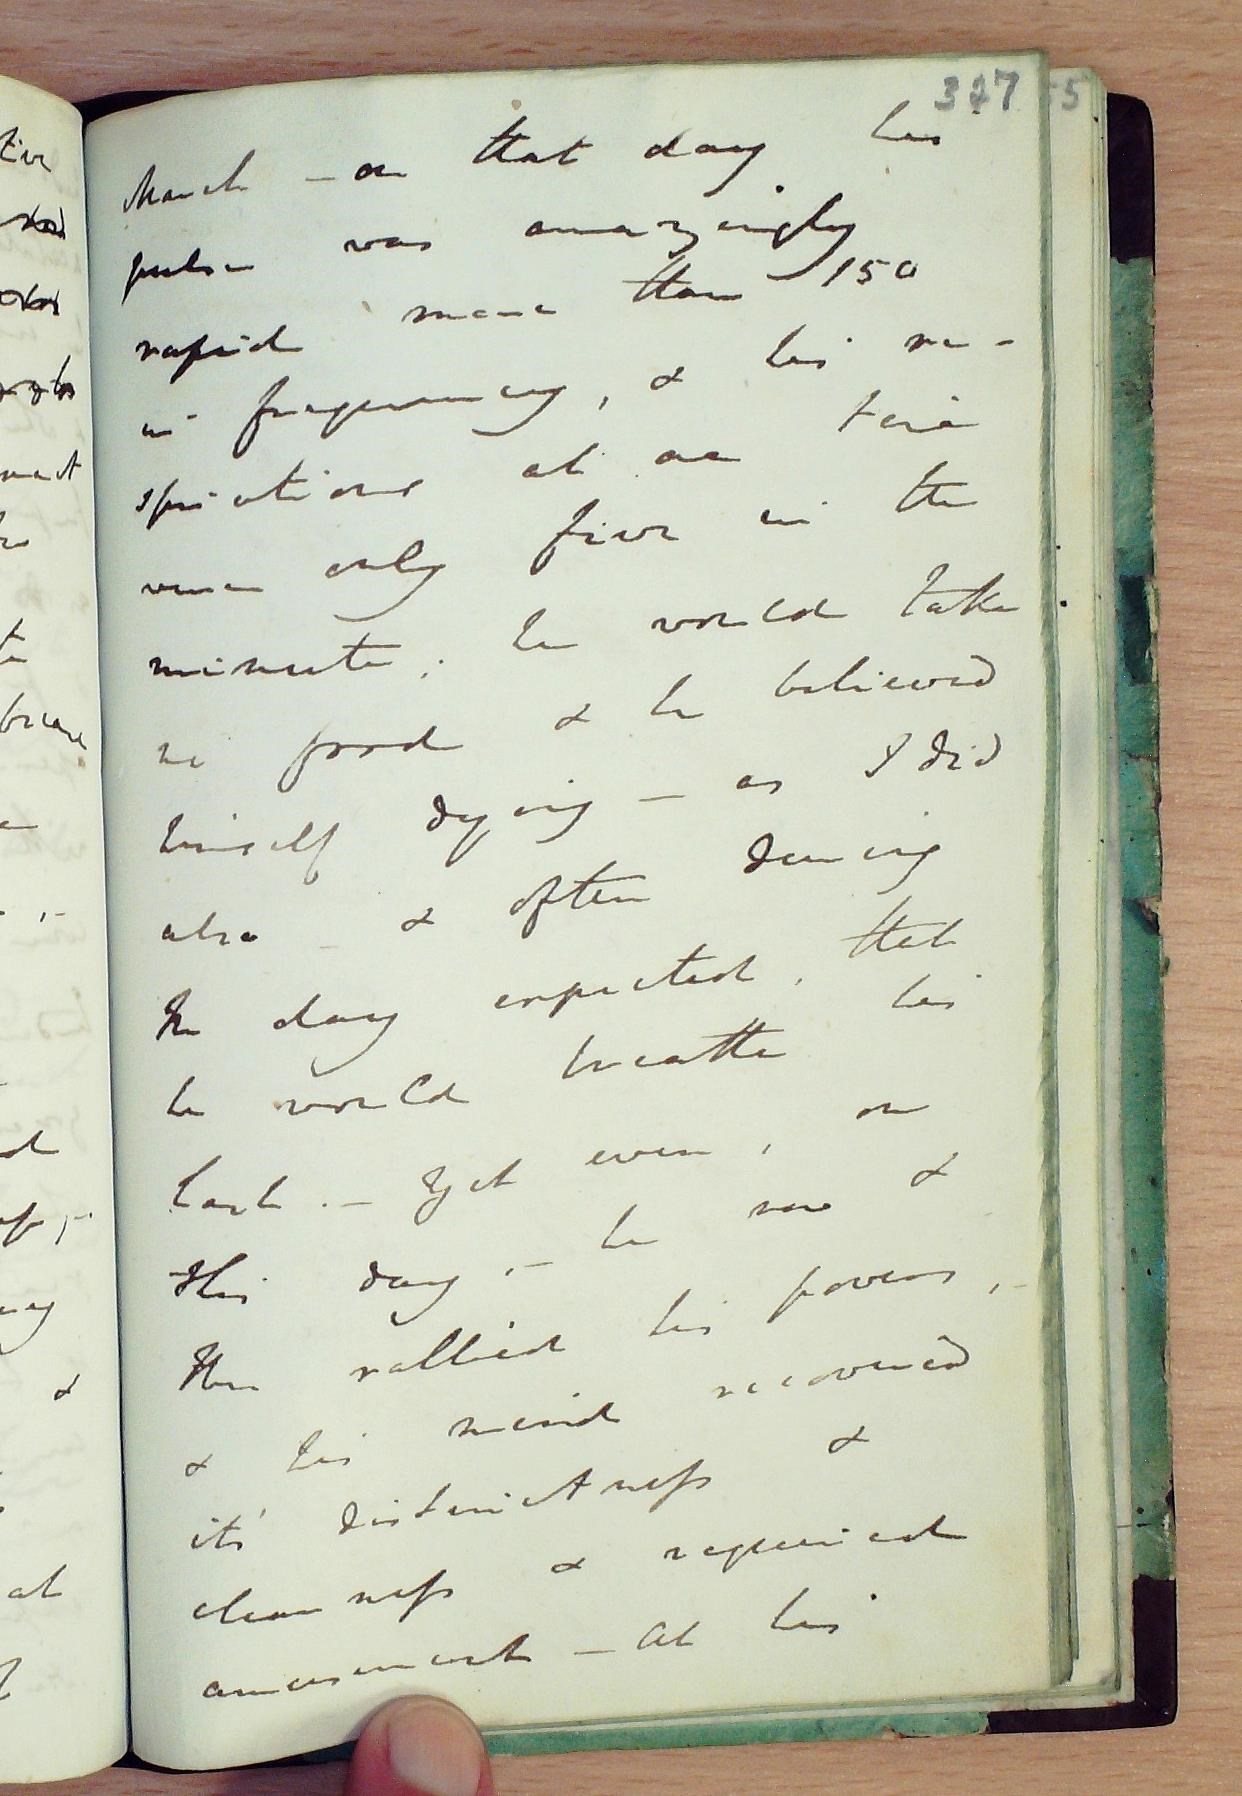 327
March – on that day his
pulse was amazingly
rapid more than 150
in frequency, & his re-
spirations at one time
were only five in the
minute; he would take
no food & he believed
himself dying – as I did
also – & often during
the day expected, that
he would breathe his
last. – Yet even, on
this day, – he now &
then rallied his powers, –
& his mind recovered
it's distinctness &
clearness & required
amusement – At his
55